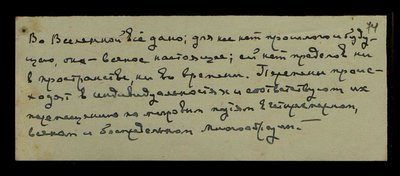 74
Во Вселенной всё дано; для нее нет прошлого и буду-
щего, она - вечное настоящее; ей нет пределов ни
в пространстве, ни во времени. Перемены проис-
ходят в индивидуальностях и соответствуют их
перемещению по мировым путям в четырехмерном,
вечном и беспредельном многообразии.